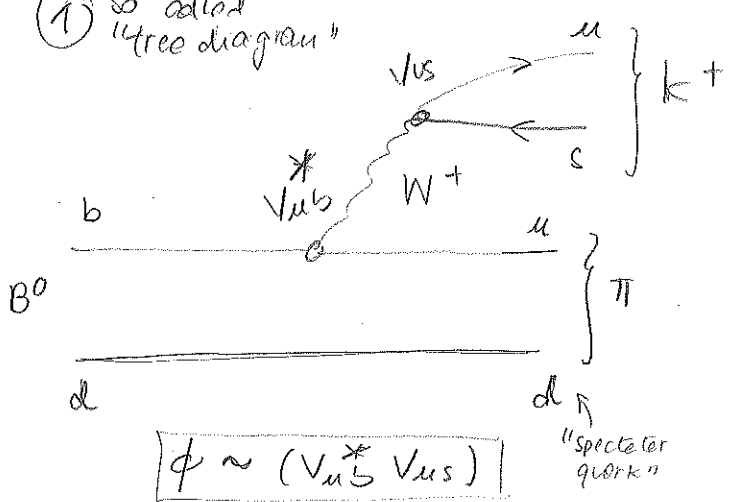 ① so called
"tree diagram"
u
Vus
K⁺
s
V*ub
W⁺
b
u
B⁰
π
d
d
"specteter
quork"
ϕ ~ (V*ub Vus)